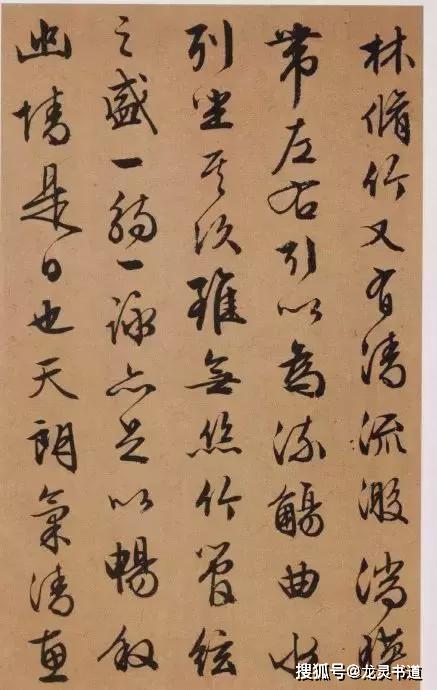 林脩竹又有清流激湍暎
帶左右引以為流觴曲水
列坐其次雖無絲竹管絃
之盛一觴一詠亦足以暢敘
幽情是日也天朗氣清惠
搜狐号@龙灵书道